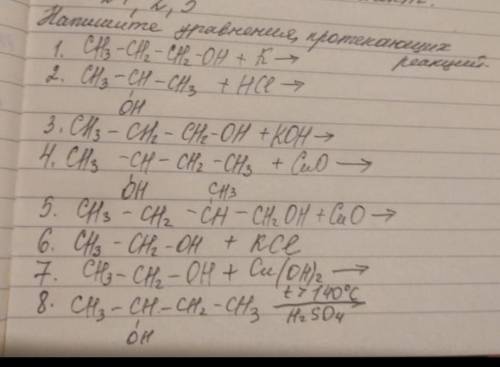 Напишите уравнения, протекающих
реакций.
1. CH3-CH2-CH2-OH + K →
2. CH3-CH-CH3 + HCl →
OH
3. CH3-CH2-CH2-OH + KOH →
4. CH3-CH-CH2-CH3 + CuO →
OH CH3
5. CH3-CH2-CH-CH2OH + CuO →
6. CH3-CH2-OH + KCl
7. CH3-CH2-OH + Cu(OH)2 →
8. CH3-CH-CH2-CH3 t>140°C
H2SO4
OH